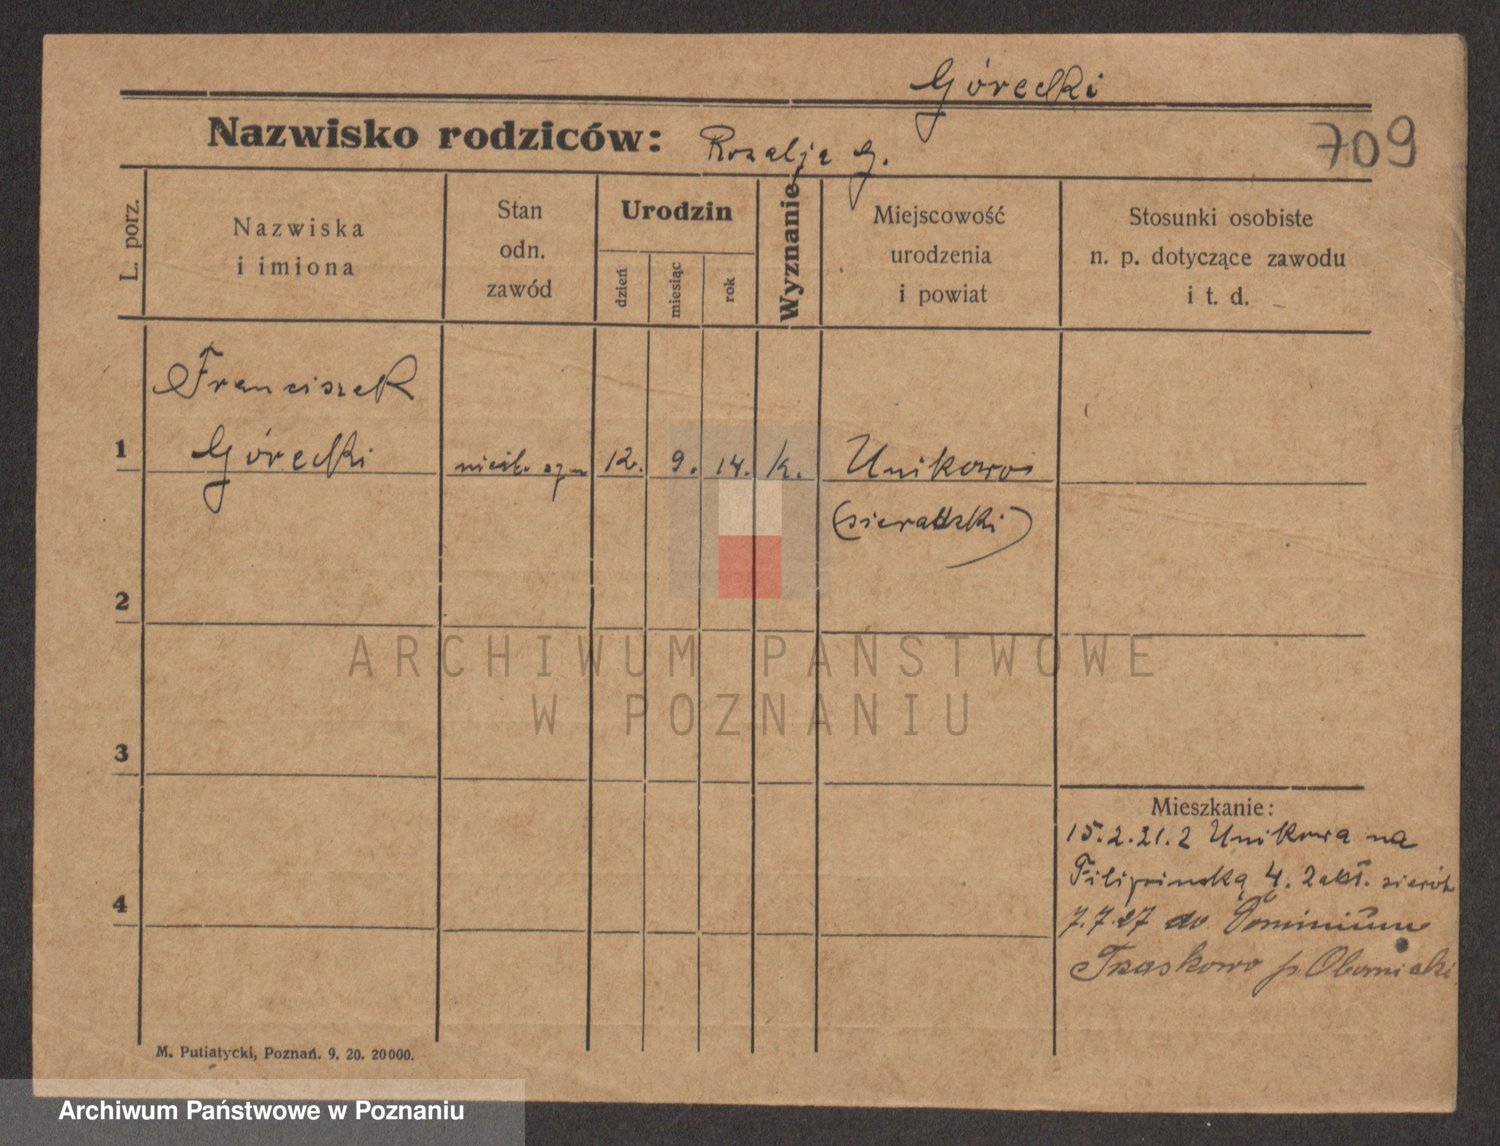 Górecki
Nazwisko rodziców: Rozalja G.
709
L. porz.
Nazwiska
i imiona
Stan
odn.
zawód
Urodzin
dzień
miesiąc
rok
Wyznanie
Miejscowość
urodzenia
i powiat
Stosunki osobiste
n. p. dotyczące zawodu
i t. d.
Franciszek
1 Górecki 12. 9. 14. k. Unikowo
(sieradzki)
2
3
4
Mieszkanie:
15.2.21. z Unikowa na
Filipińską 4. Zakł. sierót
7.7.27 do Dominium
Traskowo p. Obornicki
M. Putiatycki, Poznań. 9. 20. 20000.
ARCHIWUM PAŃSTWOWE
W POZNANIU
Archiwum Państwowe w Poznaniu